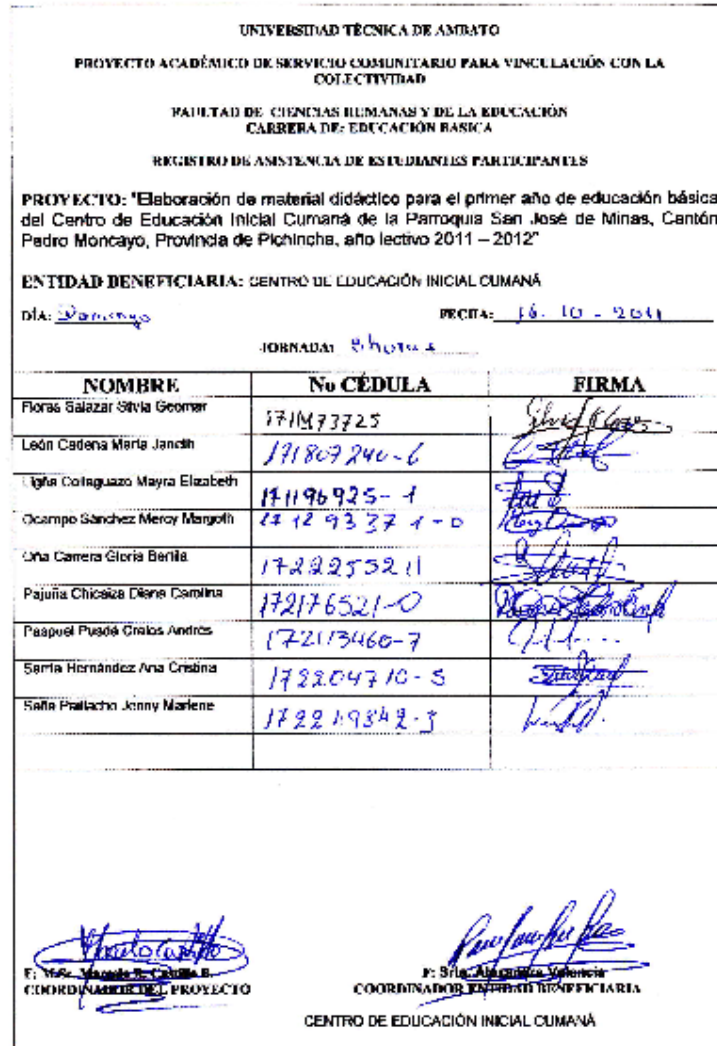 UNIVERSIDAD TÉCNICA DE AMBATO
PROYECTO ACADÉMICO DE SERVICIO COMUNITARIO PARA VINCULACIÓN CON LA
COLECTIVIDAD
FACULTAD DE CIENCIAS HUMANAS Y DE LA EDUCACIÓN
CARRERA DE: EDUCACIÓN BASICA
REGISTRO DE ASISTENCIA DE ESTUDIANTES PARTICIPANTES
PROYECTO: "Elaboración de material didáctico para el primer año de educación básica
del Centro de Educación Inicial Cumaná de la Parroquia San José de Minas, Cantón
Pedro Moncayo, Provincia de Pichincha, año lectivo 2011 – 2012"
ENTIDAD BENEFICIARIA: CENTRO DE EDUCACIÓN INICIAL CUMANÁ
DÍA: Domingo FECHA: 16 - 10 - 2011
JORNADA: 8 horas
NOMBRE No CÉDULA FIRMA
Flores Salazar Silvia Geomar 171473725
León Cadena María Janeth 171807240-6
Ligña Collaguazo Mayra Elizabeth 171196925-1
Ocampo Sánchez Mercy Margoth 171293371-0
Oña Carrera Gloria Bertila 1722255211
Pajuña Chicaiza Diana Carolina 172176521-0
Paspuel Pusdá Cralos Andrés 172113460-7
Sarria Hernández Ana Cristina 172204710-5
Saña Paillacho Jenny Marlene 172219342-3
F: M.Sc. Marcelo R. Castillo B. F: Srta. Alexandra Valencia
COORDINADOR DEL PROYECTO COORDINADOR ENTIDAD BENEFICIARIA
CENTRO DE EDUCACIÓN INICIAL CUMANÁ